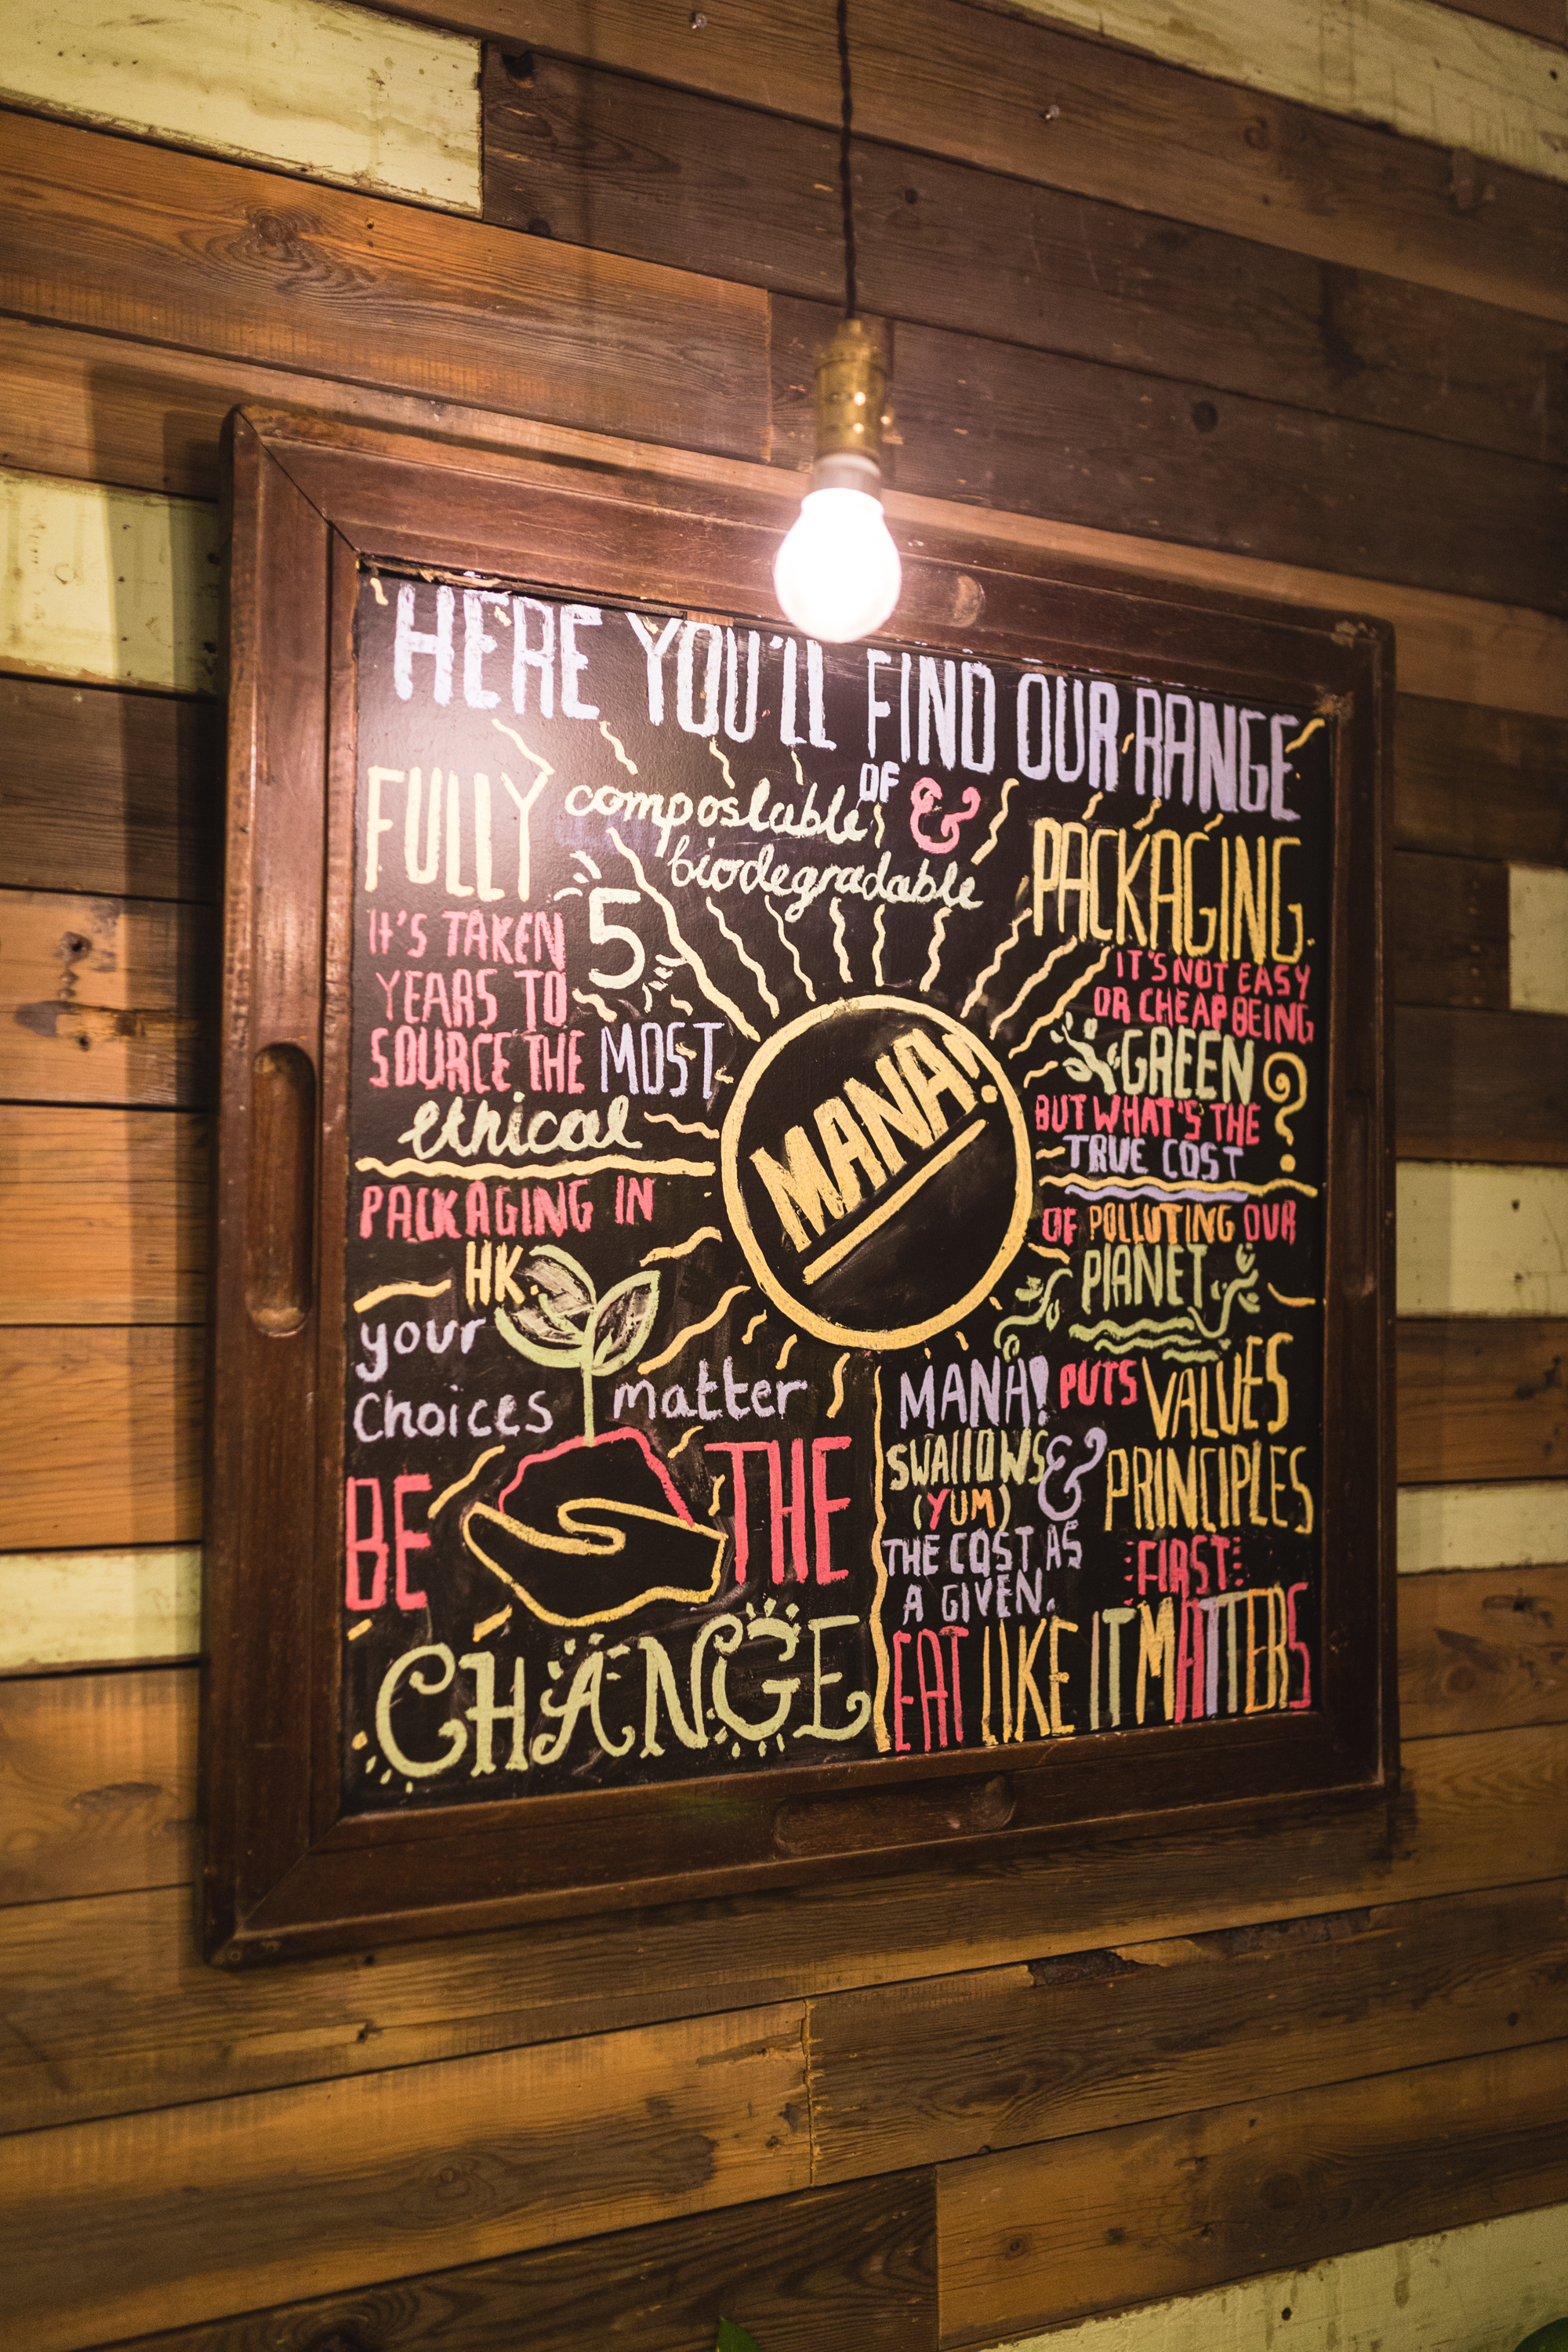 HERE YOU'LL FIND OUR RANGE
OF
FULLY compostable, &
biodegradable
PACKAGING.
IT'S TAKEN 5
YEARS TO
SOURCE THE MOST
ethical
PACKAGING IN
HK.
MANA!
IT'S NOT EASY
OR CHEAP BEING
GREEN?
BUT WHAT'S THE
TRUE COST
OF POLLUTING OUR
PLANET
your
Choices matter
BE THE
CHANGE
MANA! PUTS VALUES
& PRINCIPLES
FIRST
SWALLOWS
(YUM)
THE COST AS
A GIVEN.
EAT LIKE IT MATTERS